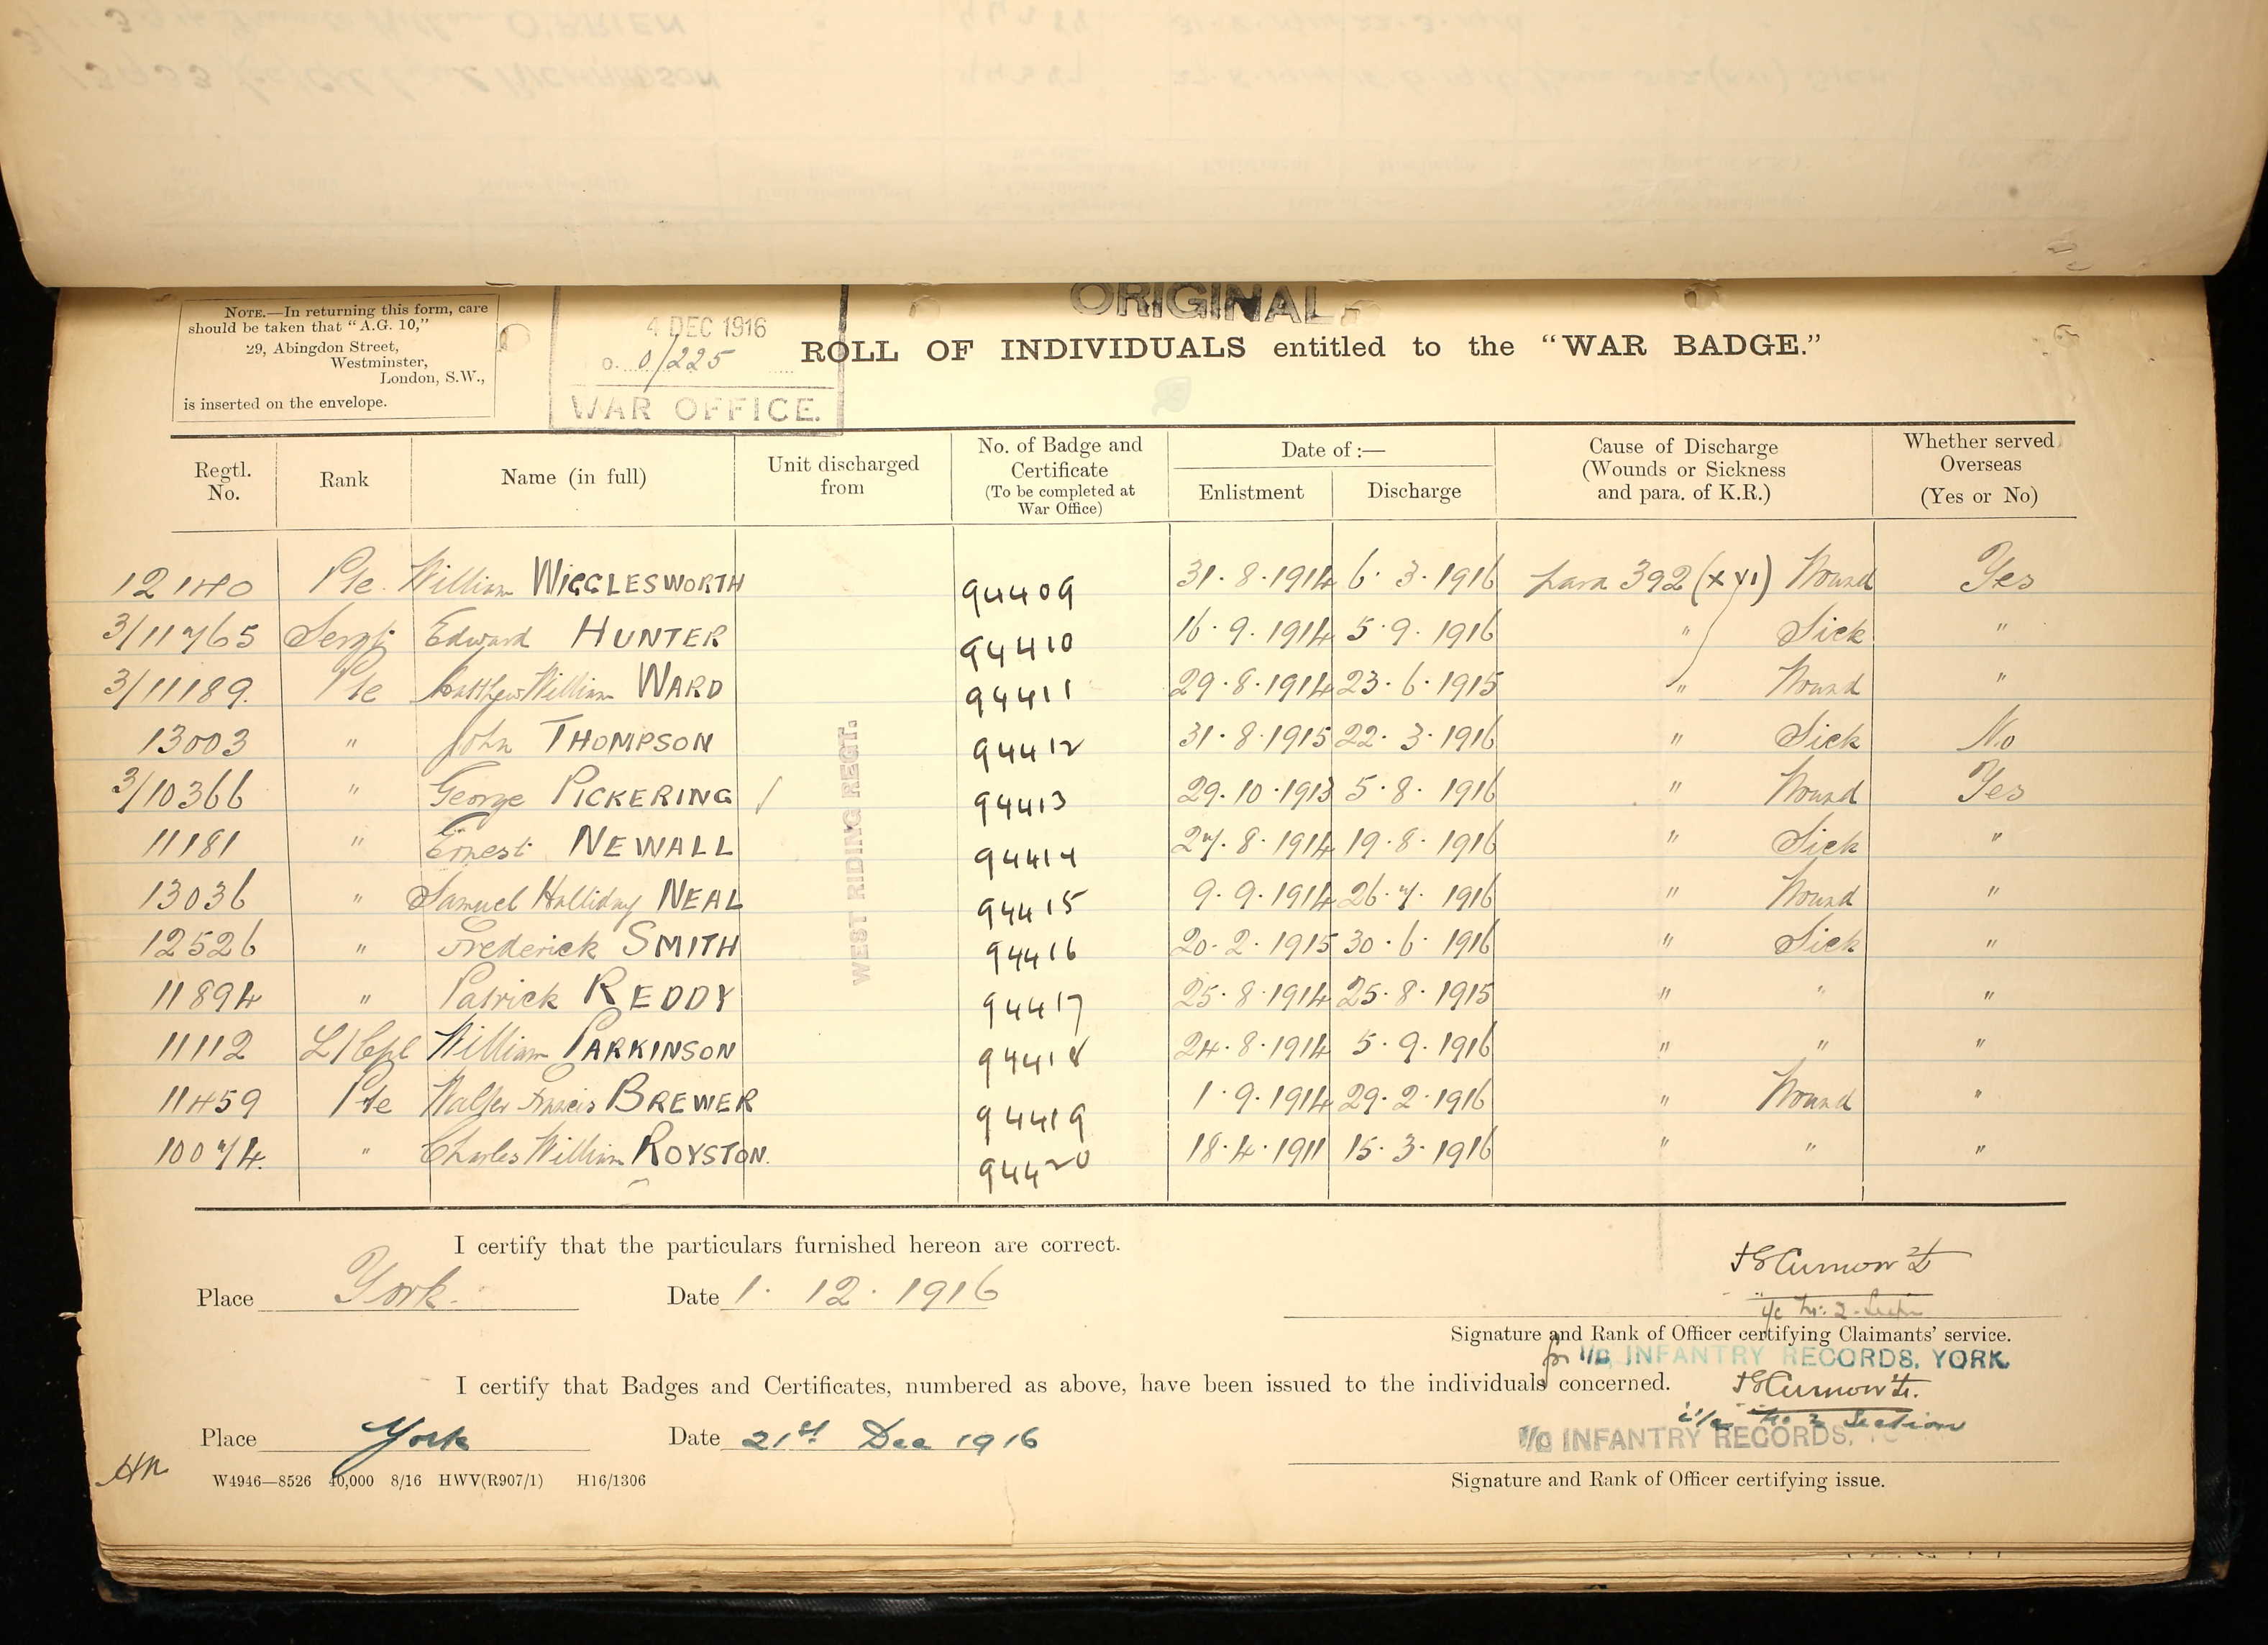 NOTE.—In returning this form, care
should be taken that "A.G. 10,"
29, Abingdon Street,
Westminster,
London, S.W.,
is inserted on the envelope.
4 DEC 1916
0/225
WAR OFFICE.
ORIGINAL
ROLL OF INDIVIDUALS entitled to the "WAR BADGE."
Regtl. No. Rank Name (in full) Unit discharged from No. of Badge and Certificate (To be completed at War Office) Date of :— Enlistment Discharge Cause of Discharge (Wounds or Sickness and para. of K.R.) Whether served Overseas (Yes or No)
12140 Pte. William WIGGLESWORTH 94409 31.8.1914 6.3.1916 para 392 (xvi) Wound Yes
3/11765 Sergt. Edward HUNTER 94410 16.9.1914 5.9.1916 " Sick "
3/11189. Pte Matthew William WARD 94411 29.8.1914 23.6.1915 " Wound "
13003 " John THOMPSON 94412 31.8.1915 22.3.1916 " Sick No
3/10366 " George PICKERING / 94413 29.10.1913 5.8.1916 " Wound Yes
11181 " Ernest NEWALL 94414 27.8.1914 19.8.1916 " Sick "
13036 " Samuel Halliday NEAL 94415 9.9.1914 26.7.1916 " Wound "
12526 " Frederick SMITH 94416 20.2.1915 30.6.1916 " Sick "
11894 " Patrick REDDY 94417 25.8.1914 25.8.1915 " " "
11112 L/Cpl William PARKINSON 94418 24.8.1914 5.9.1916 " " "
11459 Pte Walter Francis BREWER 94419 1.9.1914 29.2.1916 " Wound "
10074. " Charles William ROYSTON. 94420 18.4.1911 15.3.1916 " " "
WEST RIDING REGT.
I certify that the particulars furnished hereon are correct.
Place York. Date 1.12.1916
i/c No. 2 Section
Signature and Rank of Officer certifying Claimants' service.
for I/C INFANTRY RECORDS, YORK
I certify that Badges and Certificates, numbered as above, have been issued to the individuals concerned.
i/c No 2 Section
Place York Date 21st Dec 1916
I/C INFANTRY RECORDS,
W4946—8526 40,000 8/16 HWV(R907/1) H16/1306
Signature and Rank of Officer certifying issue.